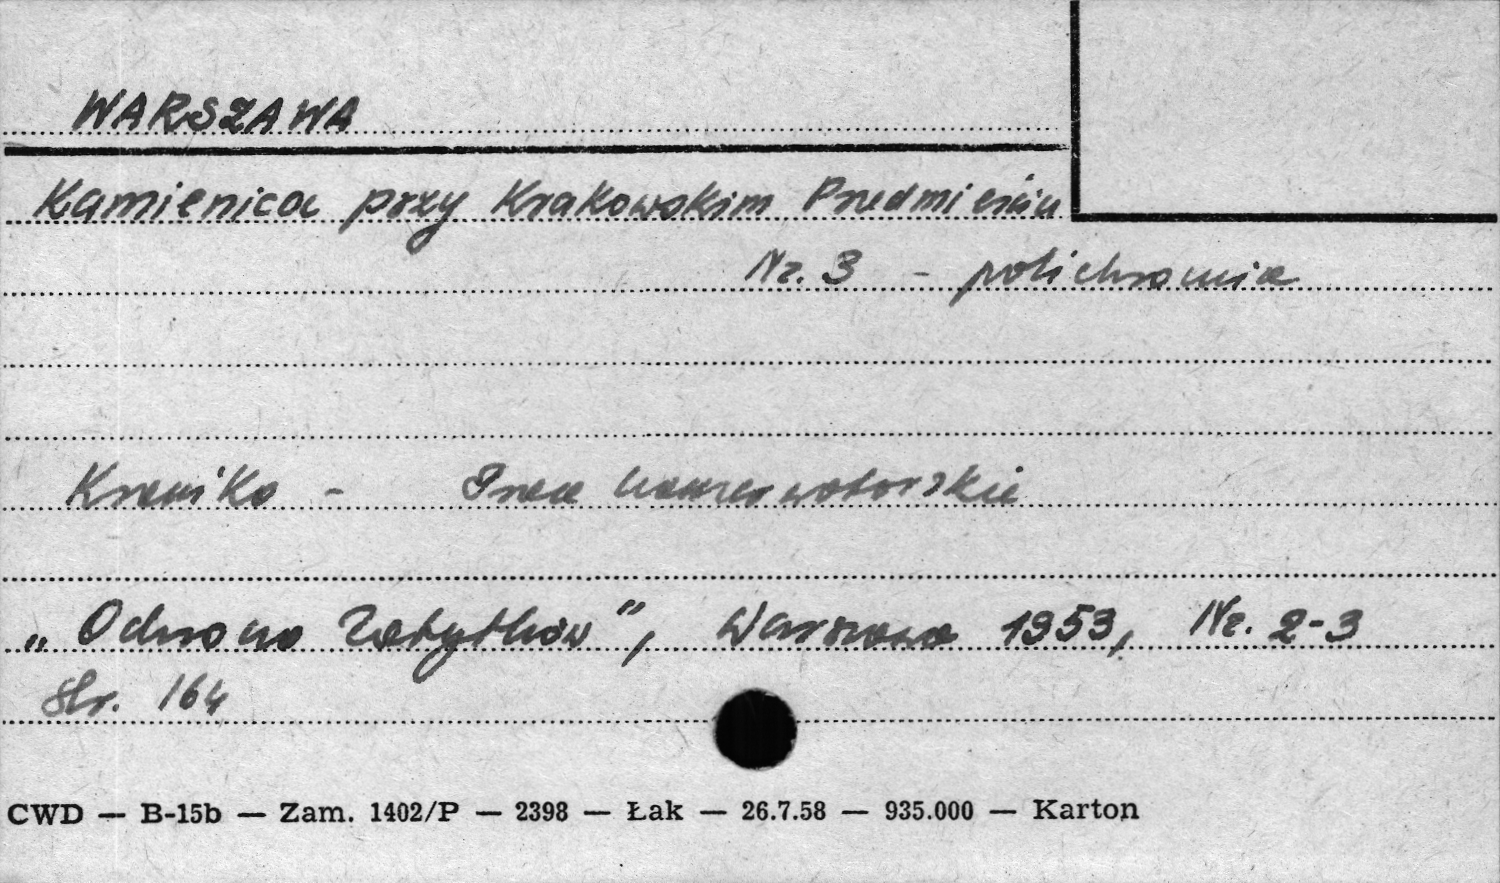 WARSZAWA
Kamienica przy Krakowskim Przedmieściu
Nr. 3 - polichromia
Kronika - Prace konserwatorskie
„Ochrona Zabytków”, Warszawa 1953, Nr. 2-3
Str. 164
CWD — B-15b — Zam. 1402/P — 2398 — Łak — 26.7.58 — 935.000 — Karton